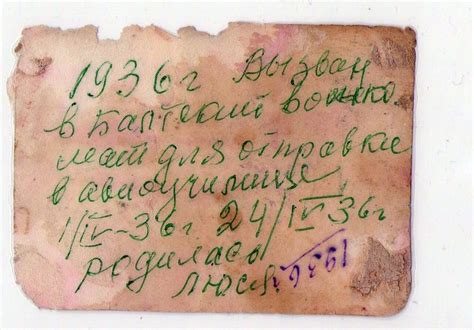 1936 г Вызван
в Баптский военко
мат для отправки
в авиоучилище
1/IV-36 г. 24/IV 36 г
родилась
Люся.
1936